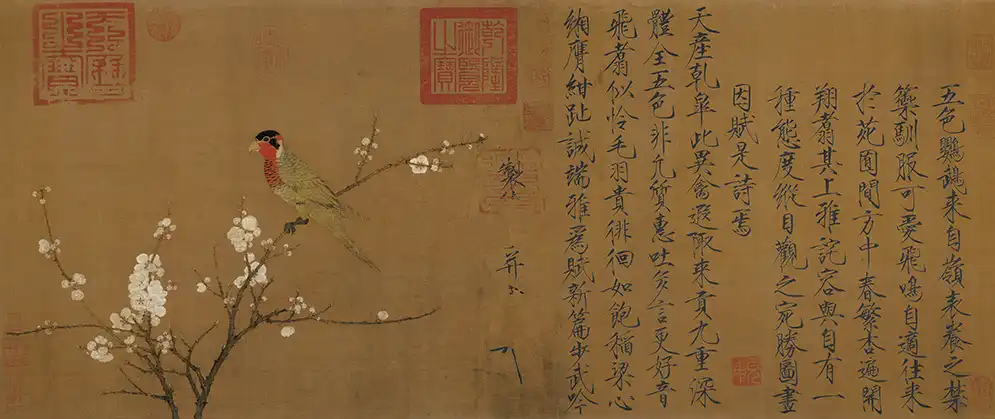 五色鸚鵡來自嶺表養之禁
籞馴服可愛飛鳴自適往來
於苑囿間方中春繁杏遍開
翔翥其上雅詫容與自有一
種態度縱目觀之宛勝圖畫
因賦是詩焉
天產乹皋此異禽遐陬來貢九重深
體全五色非凡質惠吐多言更好音
飛翥似怜毛羽貴徘徊如飽稻粱心
緗膺紺趾誠端雅為賦新篇步武吟
製
并
乾隆御覽之寶